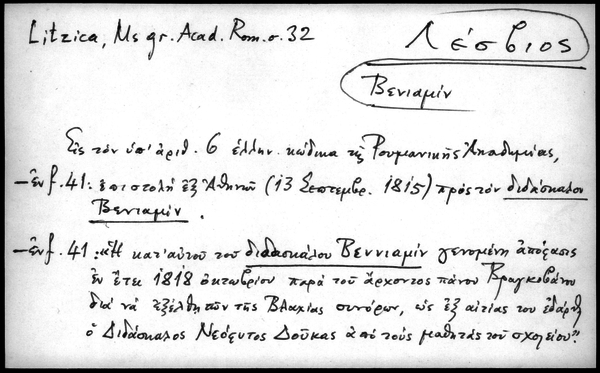 Litzica, Ms gr. Acad. Rom. σ. 32
Λέσβιος
Βενιαμίν
Εἰς τὸν ὑπ' ἀριθ. 6 ἑλλην. κώδικα τῆς Ρουμανικῆς Ἀκαδημίας,
– ἐν f. 41: ἐπιστολὴ ἐξ Ἀθηνῶν (13 Σεπτεμβρ. 1815) πρὸς τὸν διδάσκαλον
Βενιαμίν.
– ἐν f. 41: «Ἡ κατ' αὐτοῦ τοῦ διδασκάλου Βεννιαμίν γενομένη ἀπόφασις
ἐν ἔτει 1818 ὀκτωβρίου παρὰ τοῦ ἄρχοντος πάνου Βραγκοβάνου
διὰ νὰ ἐξέλθῃ τῶν τῆς Βλαχίας συνόρων, ὡς ἐξ αἰτίας του ἐδάρθη
ὁ Διδάσκαλος Νεόφυτος Δούκας ἀπὸ τοὺς μαθητάς τοῦ σχολείου».